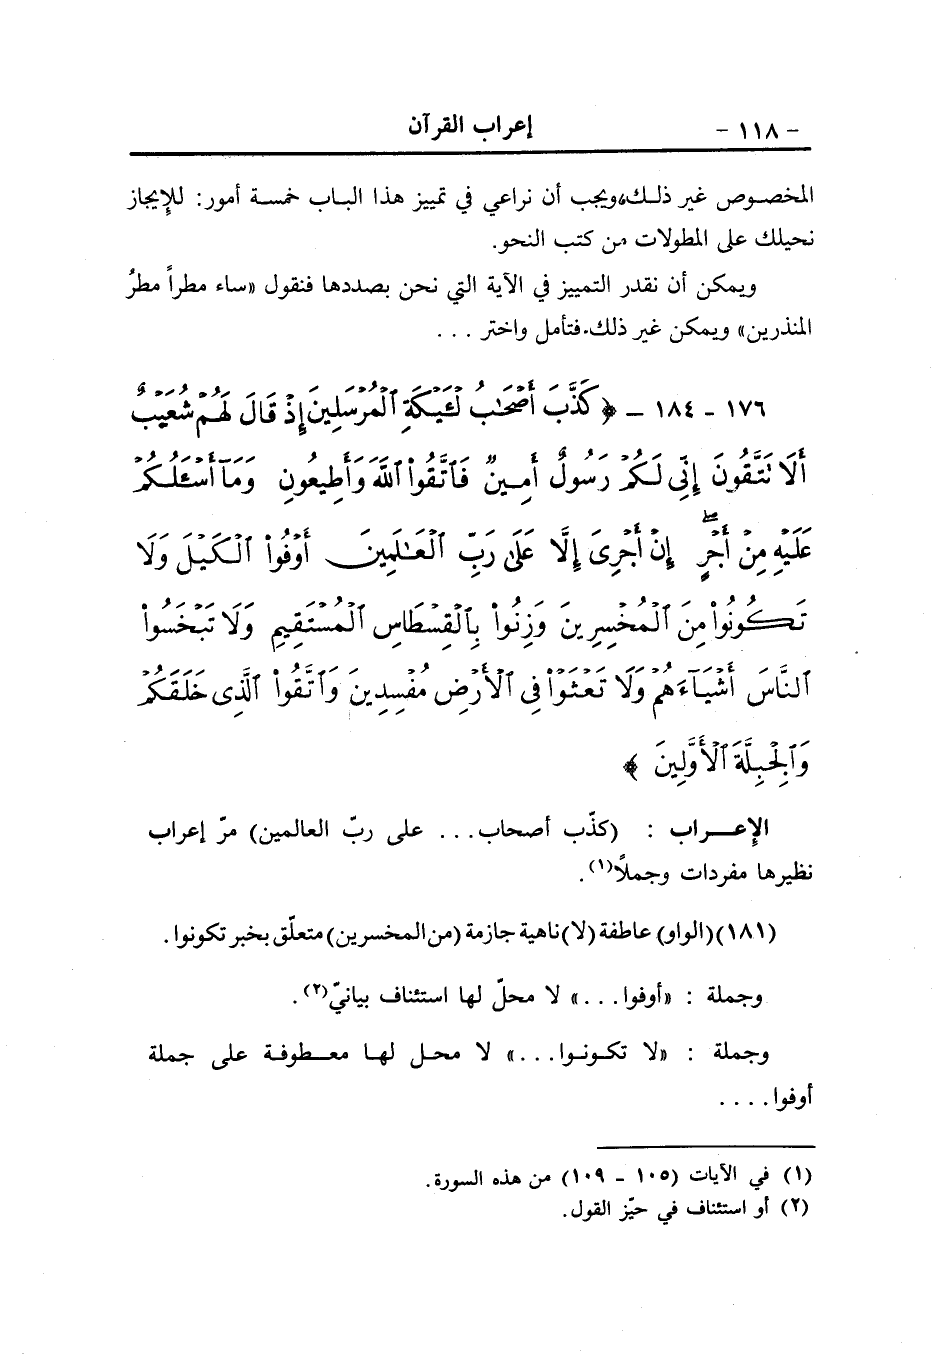 - ١١٨ - إعراب القرآن
المخصوص غير ذلك، ويجب أن نراعي في تمييز هذا الباب خمسة أمور: للإيجاز
نحيلك على المطولات من كتب النحو.
ويمكن أن نقدر التمييز في الآية التي نحن بصددها فنقول «ساء مطراً مطرُ
المنذرين» ويمكن غير ذلك. فتأمل واختر . . .
١٧٦ - ١٨٤ - ﴿ كَذَّبَ أَصْحَٰبُ لْـَٔيْكَةِ ٱلْمُرْسَلِينَ إِذْ قَالَ لَهُمْ شُعَيْبٌ
أَلَا تَتَّقُونَ إِنِّى لَكُمْ رَسُولٌ أَمِينٌ فَٱتَّقُوا۟ ٱللَّهَ وَأَطِيعُونِ وَمَآ أَسْـَٔلُكُمْ
عَلَيْهِ مِنْ أَجْرٍ ۖ إِنْ أَجْرِىَ إِلَّا عَلَىٰ رَبِّ ٱلْعَٰلَمِينَ أَوْفُوا۟ ٱلْكَيْلَ وَلَا
تَكُونُوا۟ مِنَ ٱلْمُخْسِرِينَ وَزِنُوا۟ بِٱلْقِسْطَاسِ ٱلْمُسْتَقِيمِ وَلَا تَبْخَسُوا۟
ٱلنَّاسَ أَشْيَآءَهُمْ وَلَا تَعْثَوْا۟ فِى ٱلْأَرْضِ مُفْسِدِينَ وَٱتَّقُوا۟ ٱلَّذِى خَلَقَكُمْ
وَٱلْجِبِلَّةَ ٱلْأَوَّلِينَ ﴾
الإعـــراب : (كذّب أصحاب... على ربّ العالمين) مرّ إعراب
نظيرها مفردات وجملاً(١).
(١٨١) (الواو) عاطفة (لا) ناهية جازمة (من المخسرين) متعلّق بخبر تكونوا.
وجملة : «أوفوا...» لا محلّ لها استئناف بيانيّ(٢).
وجملة : «لا تكونوا...» لا محل لها معطوفة على جملة
أوفوا. . . .
(١) في الآيات (١٠٥ - ١٠٩) من هذه السورة.
(٢) أو استئناف في حيّز القول.